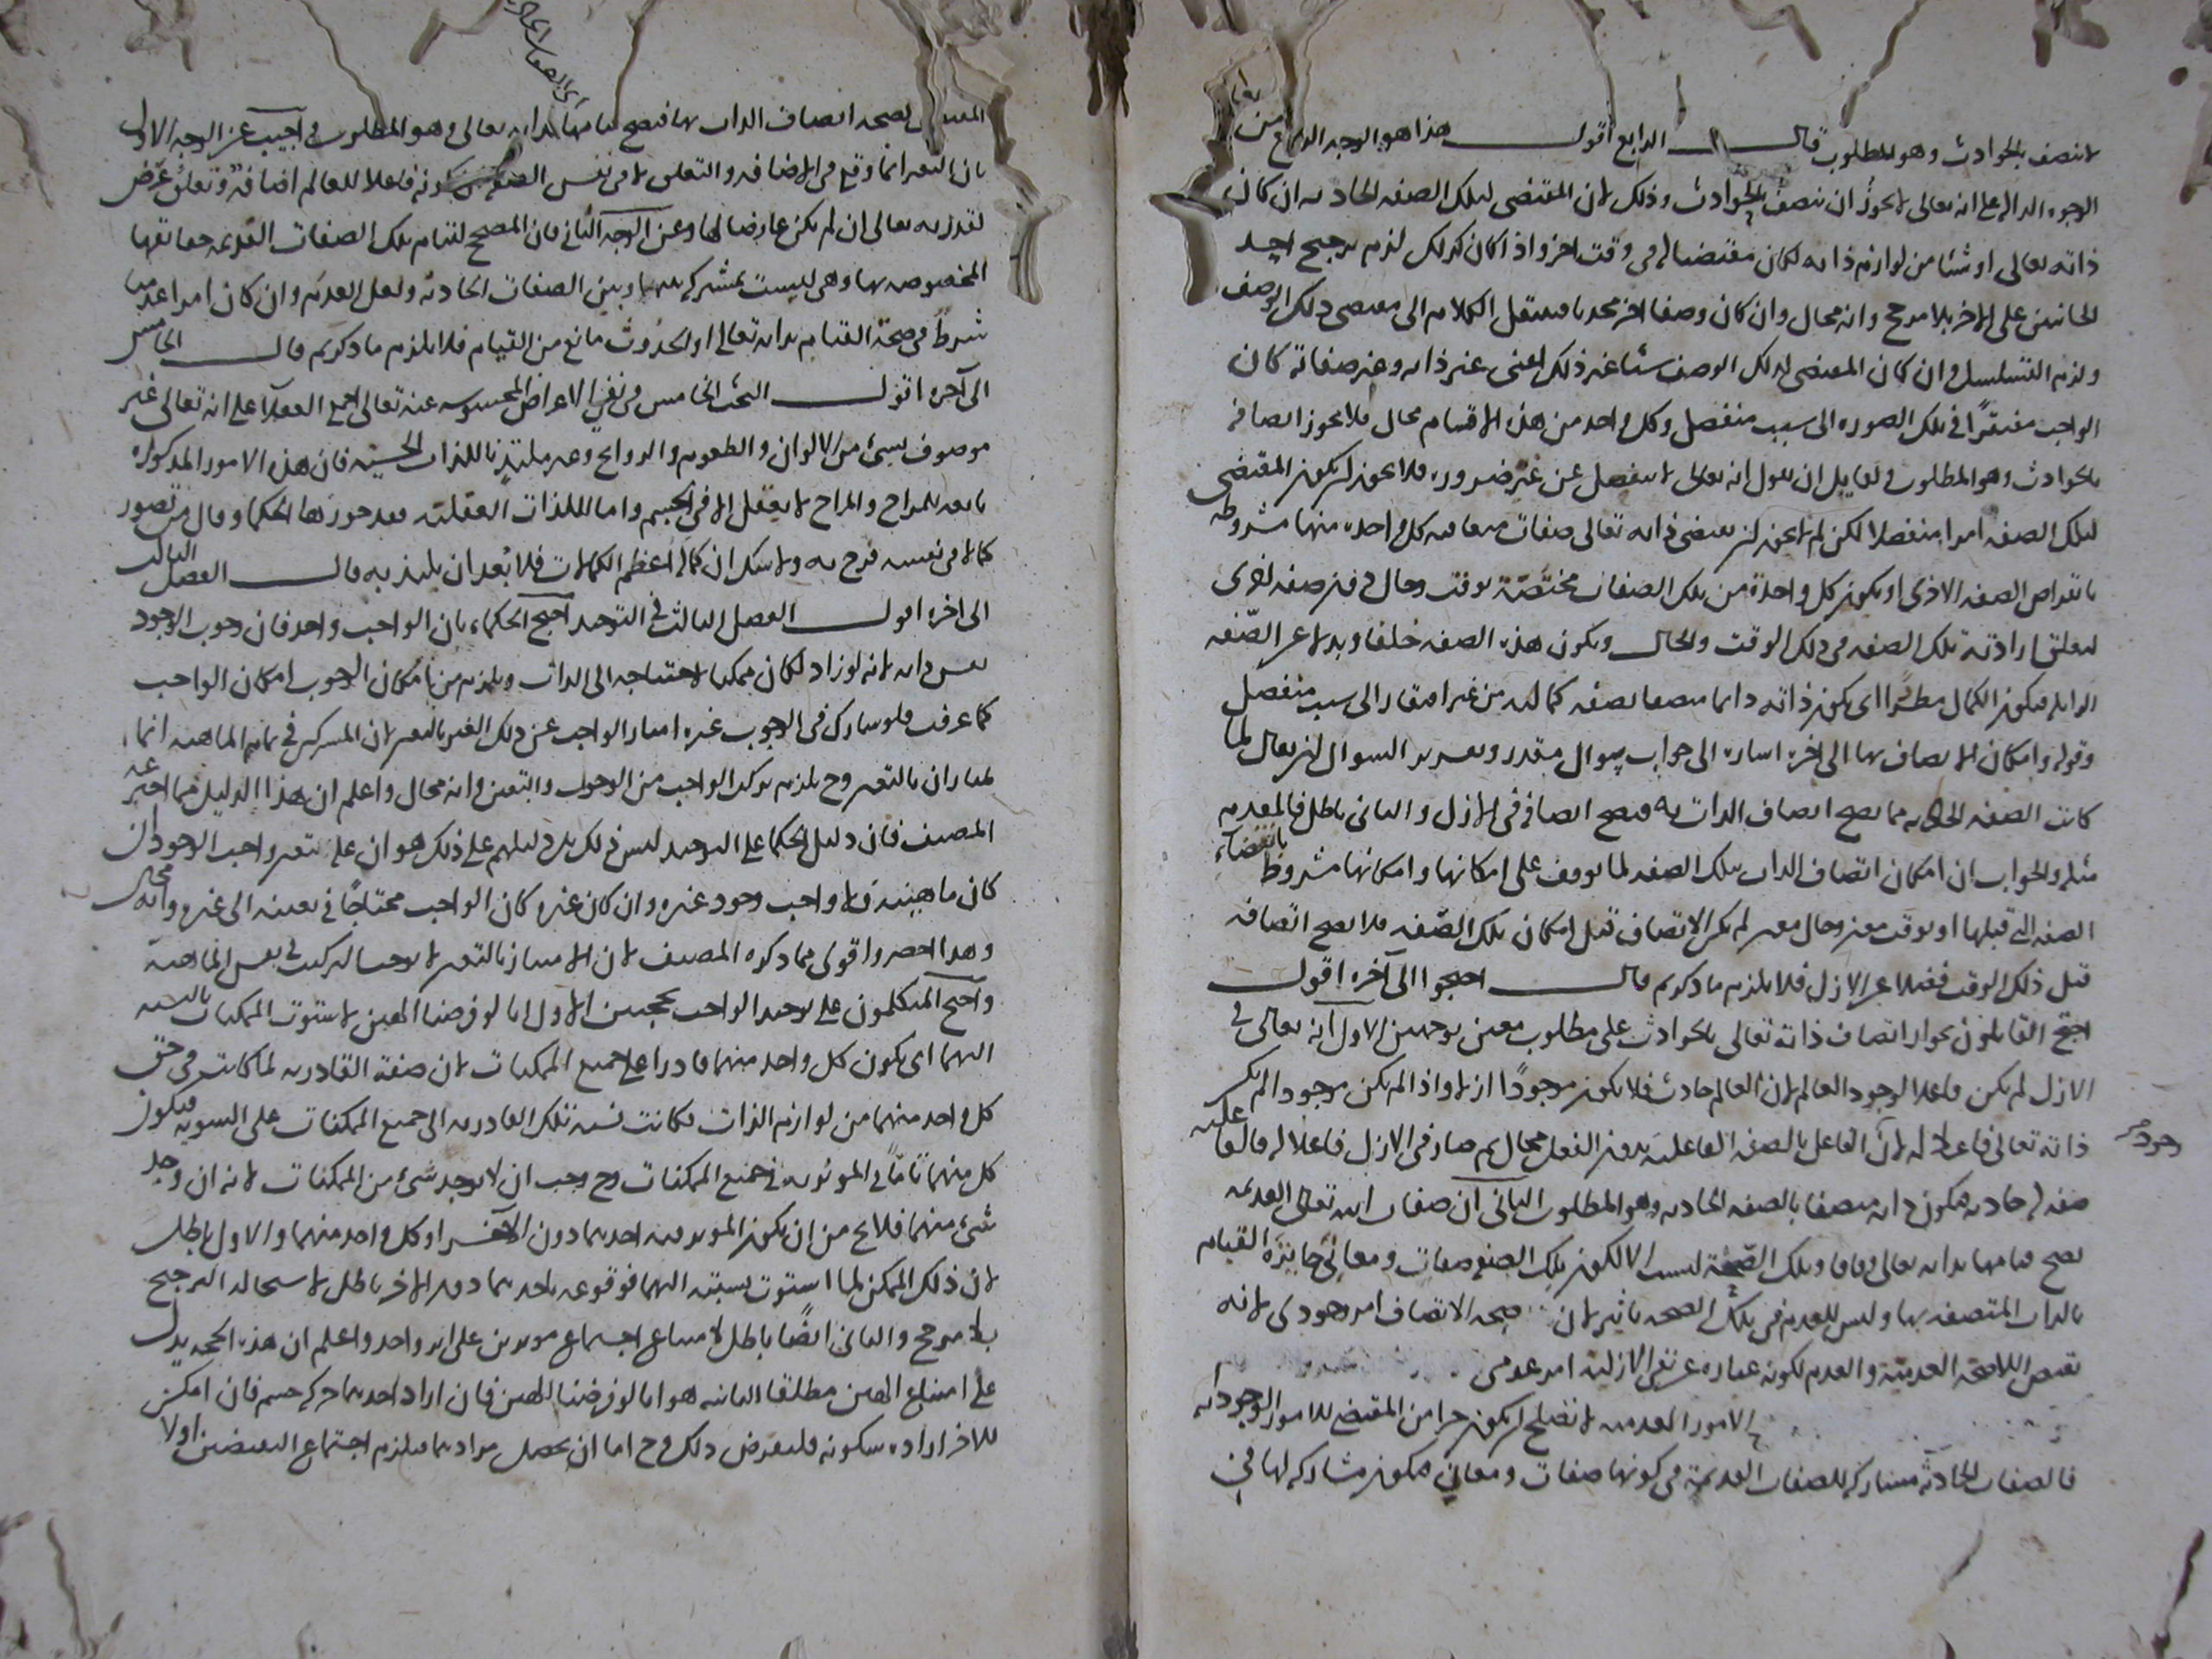 لا تتصف بالحوادث وهو المطلوب قال الرابع اقول هذا هو الوجه الرابع من
الوجوه الداله على انه تعالى لا يجوز ان يتصف بالحوادث وذلك لان المقتضى لتلك الصفه الحادثه ان كان
ذاته تعالى او شيئا من لوازم ذاته لكان مقتضيا له فى وقت اخر واذا كان كذلك لزم ترجيح احد
الجانبين على الاخر بلا مرجح وانه محال وان كان وصفا اخر محدثا فينتقل الكلام الى مقتضى ذلك الوصف
ولزم التسلسل وان كان المقتضى لذلك الوصف شيئا غير ذلك اعنى غير ذاته وغير صفاته كان
الواجب مفتقرا فى تلك الصوره الى سبب منفصل وكل واحد من هذه الاقسام محال فلا يجوز اتصافه
بالحوادث وهو المطلوب ولقايل ان يقول انه تعالى لا ينفصل عن غير ضروره فلا يجوز ان يكون المقتضى
لتلك الصفه امرا منفصلا لكن لم لا يجوز ان يقتضى ذاته تعالى صفات متعاقبه كل واحده منها مشروطه
بانقراض الصفه الاخرى او يكون كل واحدة من تلك الصفات مختصة بوقت وحال دون صفه اخرى
لتعلق ارادته تلك الصفه فى ذلك الوقت والحال ويكون هذه الصفه خلفا وبدلا عن الصفه
الزايله فيكون الكمال مطردا اى يكون ذاته دايما متصفا بصفه كماليه من غير افتقار الى سبب منفصل
وقوله وامكان الاتصاف بها الى اخره اشاره الى جواب سوال مقدر وتقرير السوال ان يقال لما
كانت الصفه الحادثه مما يصح اتصاف الذات به فيصح اتصافه فى الازل والثانى باطل فالمقدم
مثله والجواب ان امكان اتصاف الذات بتلك الصفه لما توقف على امكانها وامكانها مشروط بانقضاء
الصفه التى قبلها او بوقت معين وحال معين لم يكن الاتصاف قبل امكان تلك الصفه فلا يصح اتصافه
قبل ذلك الوقت فضلا عن الازل فلا يلزم ما ذكرتم قال احتجوا الى آخره اقول
احتج القايلون بجواز اتصاف ذاته تعالى بالحوادث على مطلوب معين بوجهين الاول انه تعالى فى
الازل لم يكن فاعلا لوجود العالم لان العالم حادث فلا يكون موجودا ازلا واذا لم يكن موجودا لم يكن
وجود
ذاته تعالى فاعلا له لان الفاعل بالصفه الفاعليه بدون الفعل محال ثم صار فى الازل فاعلا له فالفاعليه
صفه له حادثه فيكون ذاته متصفا بالصفه الحادثه وهو المطلوب الثانى ان صفات الله تعالى القديمه
تصح قيامها بذاته تعالى وفاقا وتلك الصحة ليست الا لكون تلك الصفه صفات ومعانى جايزة القيام
بالذات المتصفه بها وليس للقدم فى تلك الصحه تاثير لان صحه الاتصاف امر وجودى لانه
نقيض اللاصحه العدميه والقدم لكونه عباره عن نفى الازليه امر عدمى
الامور العدميه لا تصلح ان يكون جزا من المقتضى للامور الوجوديه
فالصفات الحادثه مشاركه للصفات القديمه فى كونها صفات ومعانى فيكون مشاركه لها فى
المقتضى لصحه اتصاف الذات بها فتصح قيامها بذاته تعالى وهو المطلوب واجيب عن الوجه الاول
بان التغير انما وقع فى الاضافه والتعلق لا فى نفس الصفه كونه فاعلا للعالم اضافة وتعلق عرض
لقدرته تعالى ان لم يكن عارضا لها وعن الوجه الثانى فان المصحح لقيام تلك الصفات القديمه حقايقها
المخصوصه بها وهى ليست بمشتركه بينها وبين الصفات الحادثه ولعل القدم وان كان امرا عدميا
شرط فى صحة القيام بذاته تعالى او الحدوث مانع من القيام فلا يلزم ما ذكرتم قال الخامس
الى آخره اقول البحث الخامس فى نفى الاعراض المحسوسه عنه تعالى اجمع العقلاء على انه تعالى غير
موصوف بشىء من الالوان والطعوم والروايح وغير ملتذ باللذات الحسيه فان هذه الامور المذكوره
تابعه للمزاج والمزاج لا يعقل الا فى الجسم واما اللذات العقليه فقد جوزها الحكما وقال من تصور
كمالا فى نفسه فرح به ولا شك ان كماله اعظم الكمالات فلا بُعد ان يلتذ به قال الفصل الثالث
الى اخره اقول الفصل الثالث فى التوحيد احتج الحكماء بان الواجب واحد فان وجوب الوجود
نفس ذاته لانه لو زاد لكان ممكنا لاحتياجه الى الذات ويلزم من امكان الوجوب امكان الواجب
كما عرفت فلو شارك فى الوجوب غيره امتاز الواجب عن ذلك الغير بالتعين لان المشتركين فى تمام الماهيه انما
يمتازان بالتعين وح يلزم تركب الواجب من الوجوب والتعين وانه محال واعلم ان هذا الدليل مما اخترعه
المصنف فان دليل الحكما على التوحيد ليس ذلك بل دليلهم على ذلك هو ان علة تعين واجب الوجود ان
كان ماهيته فلا واجب وجود غيره وان كان غيره كان الواجب محتاجا فى تعينه الى غيره وانه محال
وهذا اخصر واقوى مما ذكره المصنف لان الامتياز بالتعين لا يوجب التركيب فى نفس الماهية
واحتج المتكلمون على توحيد الواجب بحجتين الاول انا لو فرضنا الهين لاستوت الممكنات بالنسبه
اليهما اى يكون كل واحد منهما قادرا على جميع الممكنات لان صفة القادريه لما كانت فى حق
كل واحد منهما من لوازم الذات فكانت نسبة تلك القادريه الى جميع الممكنات على السويه فيكون
كل منهما تاما فى الموثريه فى جميع الممكنات وح وجب ان لا يوجد شىء من الممكنات لانه ان وجد
شىء منهما فلا يخ من ان يكون الموثر فيه احدهما دون الآخر او كل واحد منهما والاول باطل
لان ذلك الممكن لما استوت نسبته اليهما فوقوعه باحدهما دون الاخر باطل لاستحاله الترجيح
بلا مرجح والثانى ايضا باطل لامتناع اجتماع موثرين على اثر واحد واعلم ان هذه الحجه يدل
على امتناع الهين مطلقا الثانيه هو انا لو فرضنا الهين فان اراد احدهما حركه جسم فان امكن
للاخر اراده سكونه فليفرض ذلك وح اما ان يحصل مرادهما فيلزم اجتماع النقيضين اولا